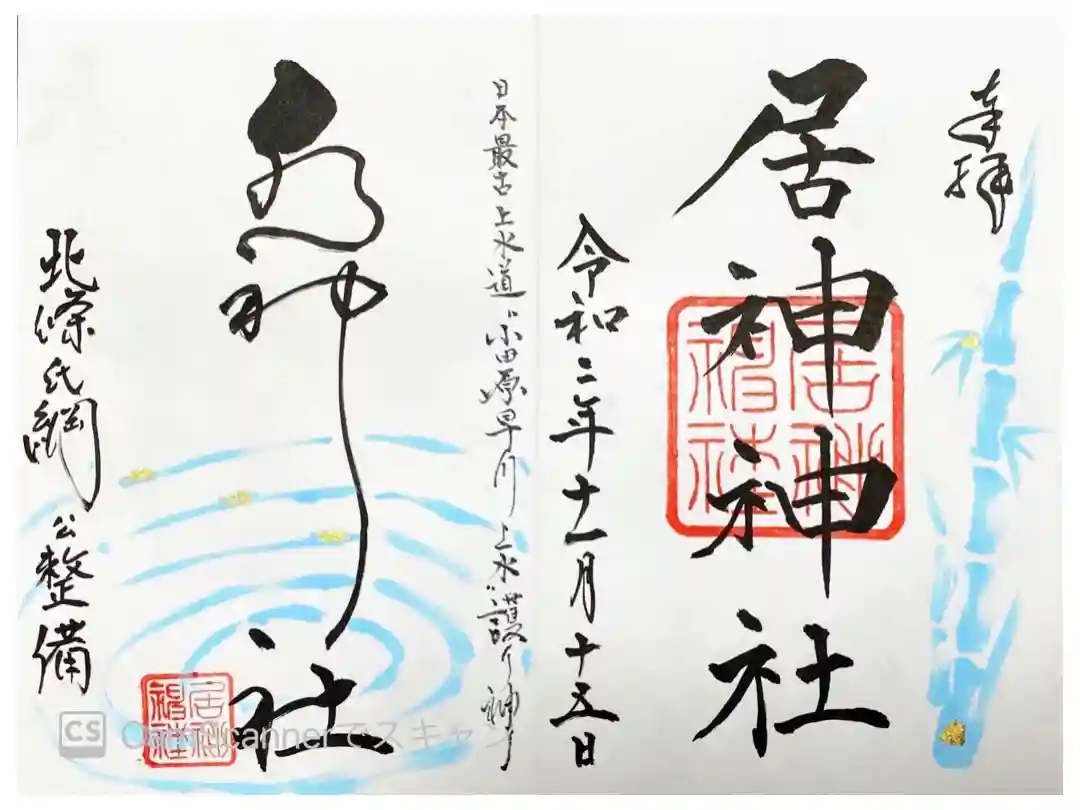 奉拝
居神神社
令和二年十一月十五日
日本最古上水道〝小田原早川上水〟護り神
水神社
北條氏綱公整備
居神神社
居神神社
CS CamScannerでスキャン